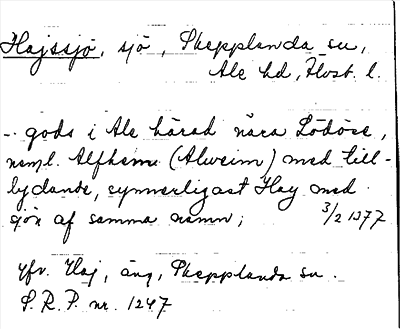 Hajssjö, sjö, Skepplanda sn,
Ale hd, Älvsb. l.
-- gods i Ale härad nära Lödöse,
neml. Alfhem (Alweim) med till-
lydande, synnerligast Hay med
sjön af samma namn; 3/2 1377
Jfr. Haj, äng, Skepplanda sn.
S. R. P. nr. 1247